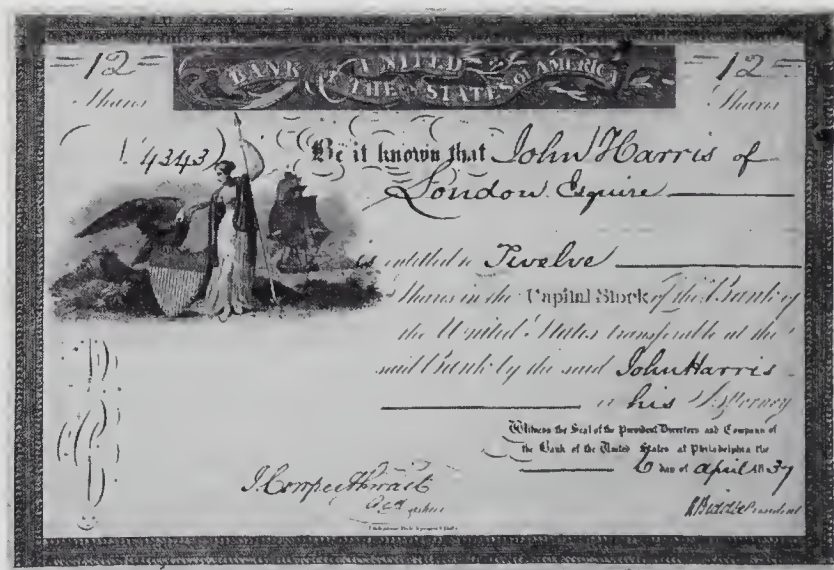 =12= BANK OF THE UNITED STATES OF AMERICA =12=
Shares Shares
4343) Be it known that John Harris of
London Esquire
is entitled to Twelve
Shares in the Capital Stock of the Bank of
the United States transferable at the
said Bank by the said John Harris
or his Attorney
Witness the Seal of the President Directors and Company of
the Bank of the United States at Philadelphia the
6 day of april 1837
J. Cowperthwait
Cashier
N Biddle President